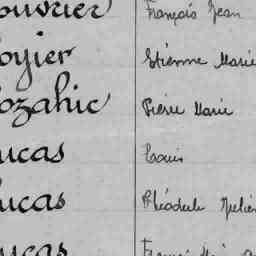 ouvrier François Jean
oyier Etienne Marie
ozahic Pierre Marie
ucas Louis
ucas Théodule
ucas